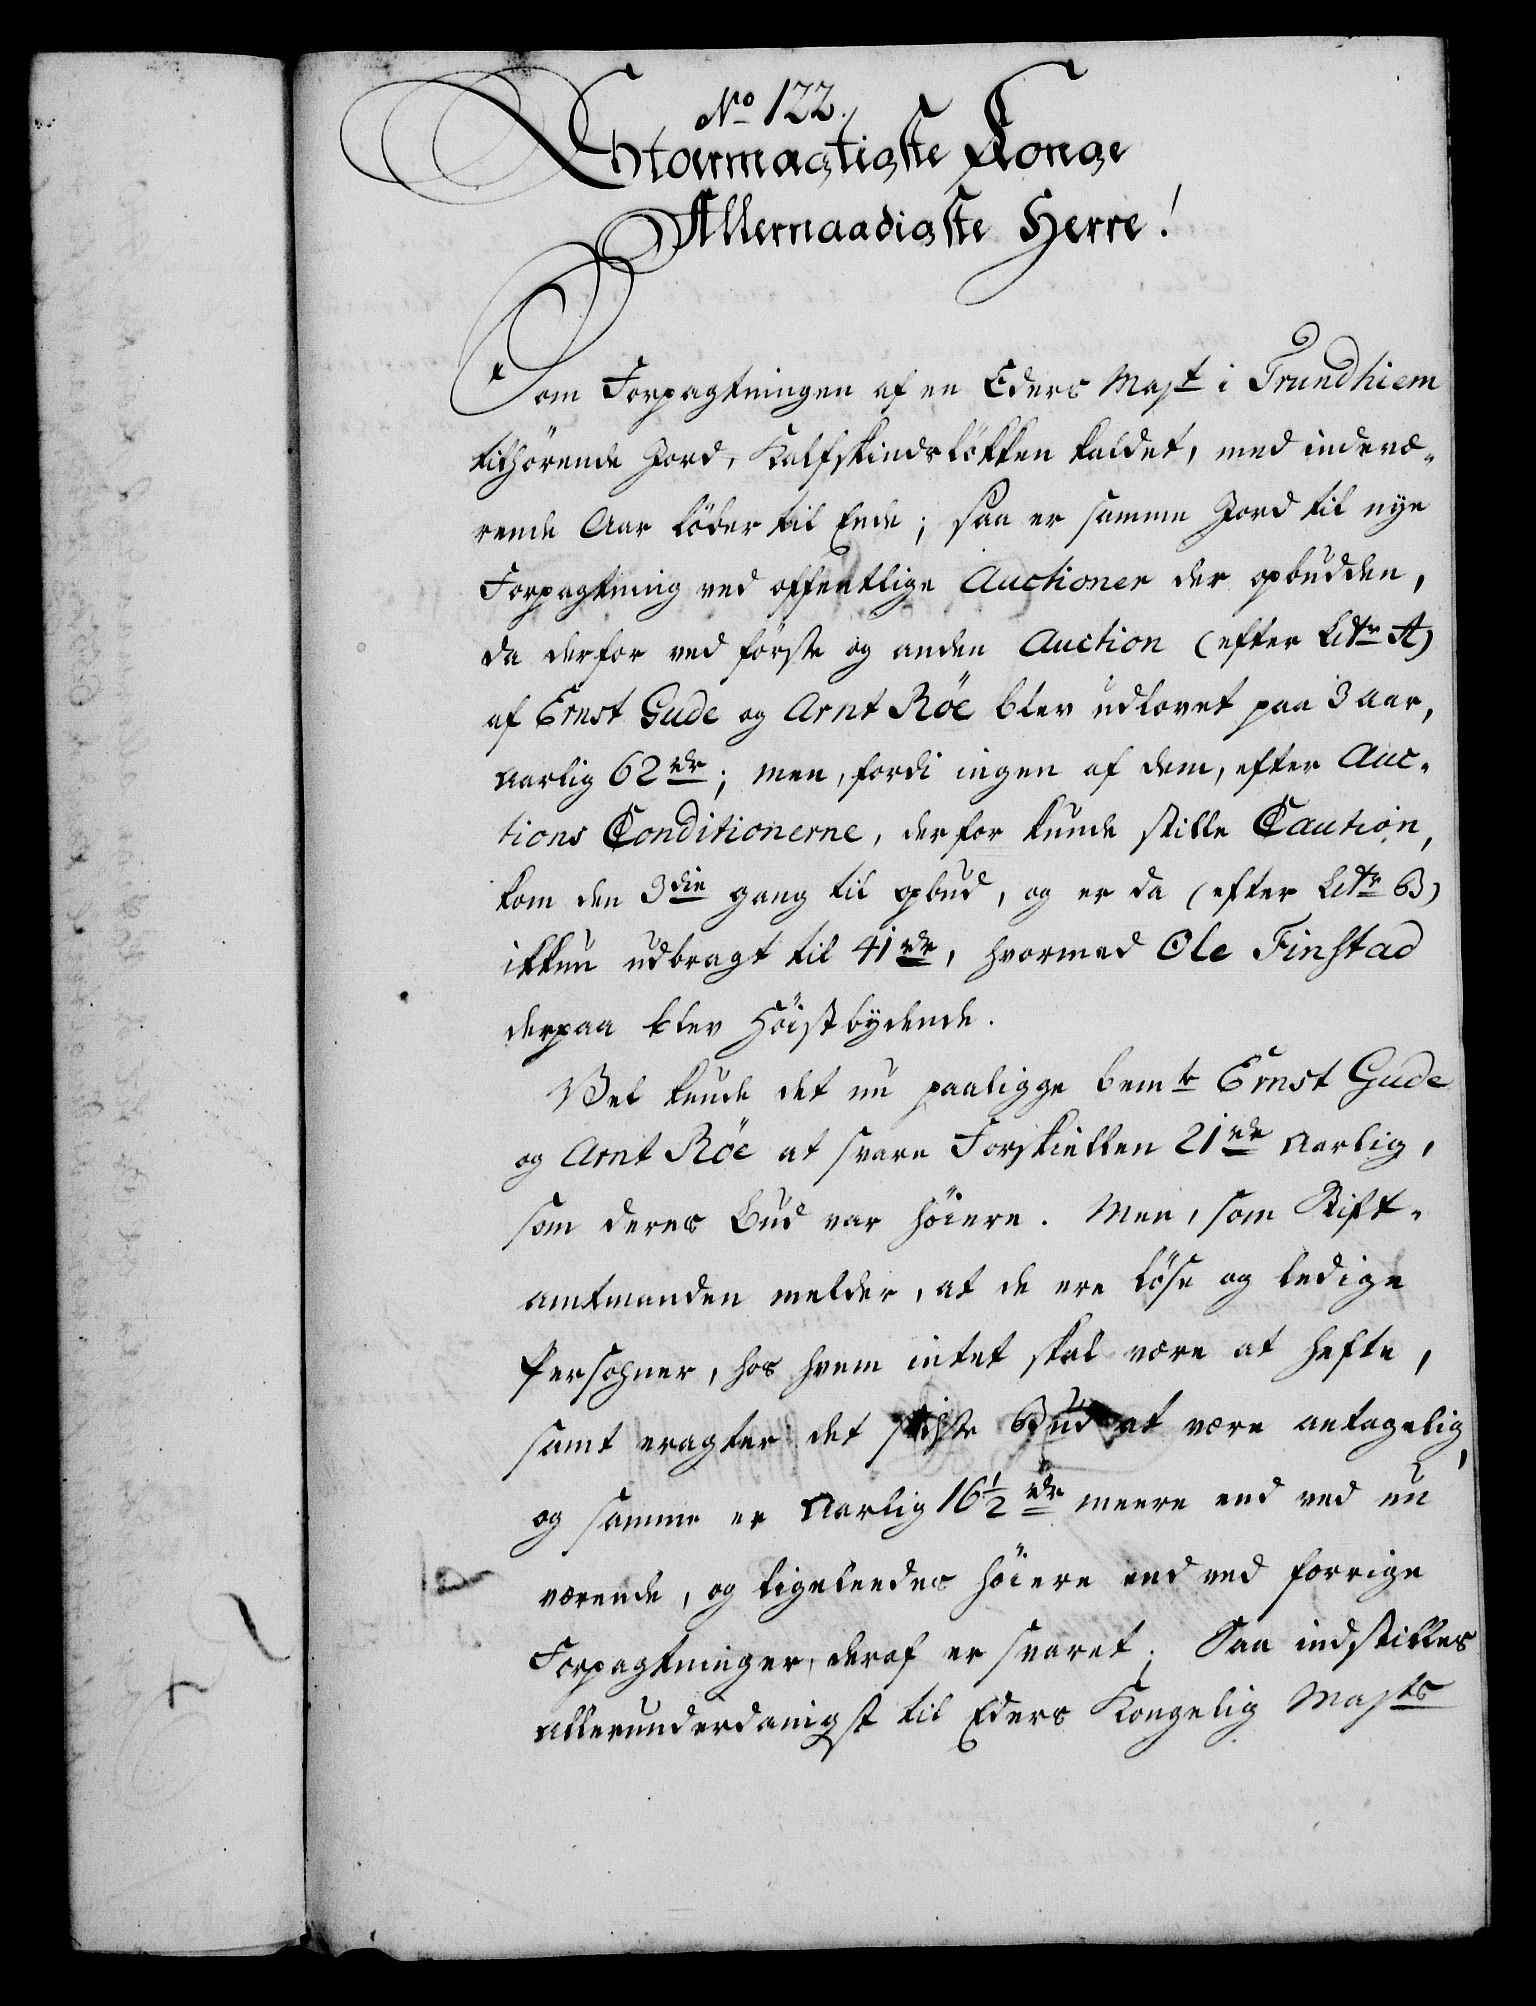 No 122.
Stormægtigste Konge
Allernaadigste Herre!
Som Forpagtningen af en Eders Mayt i Trundhiem
tilhörende Jord, Kalfskindslökken kaldet, med indevæ-
rende Aar löber til Ende; saa er samme Jord til nye
Forpagtning ved offentlige Auctioner der opbudden,
da derfor ved förste og anden Auction (efter Litr A)
af Ernst Gude og Arnt Röe blev udlovet paa 3 aar,
aarlig 62 rdr; men, fordi ingen af dem, efter Auc-
tions Conditionerne, derfor kunde stille Caution,
kom den 3die gang til opbud, og er da (efter Litr B)
ikkun udbragt til 41 rdr, hvormed Ole Finstad
derpaa blev höistbydende.
Vel kunde det nu paaligge bemte Ernst Gude
og Arnt Röe at svare Forskiellen 21 rdr aarlig,
som deres bud var höiere. Men, som Stift-
amtmanden melder, at de ere löse og ledige
Persohner, hos hvem intet skal være at hefte,
samt eragter det sidste Bud at være antagelig,
og samme er aarlig 16 1/2 rdr meere end ved nu
værende, og ligeleedes höiere end ved forrige
Forpagtninger, deraf er svaret; Saa indstilles
allerunderdanigst til Eders Kongelig Mayts